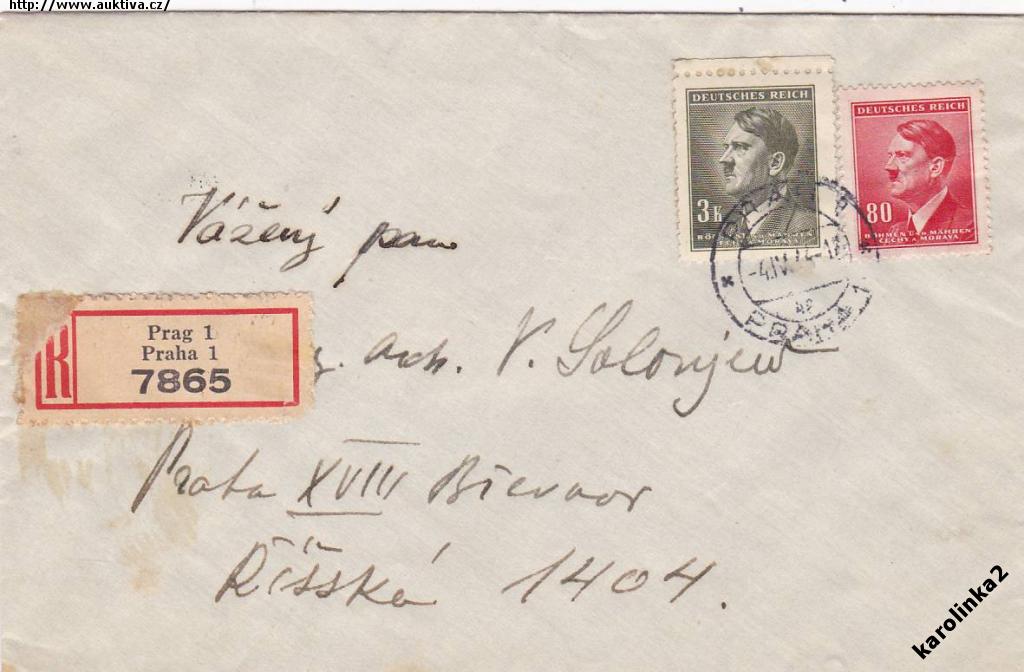 http://www.auktiva.cz/
DEUTSCHES REICH
3K
BÖHMEN UND MÄHREN
ČECHY A MORAVA
DEUTSCHES REICH
80
BÖHMEN UND MÄHREN
ČECHY A MORAVA
PRAG 1
-4.IV.
PRAHA 1
Vážený pan
R
Prag 1
Praha 1
7865
arch. V. Solovjew
Praha XVIII Břevnov
Říšská 1404.
karolinka2